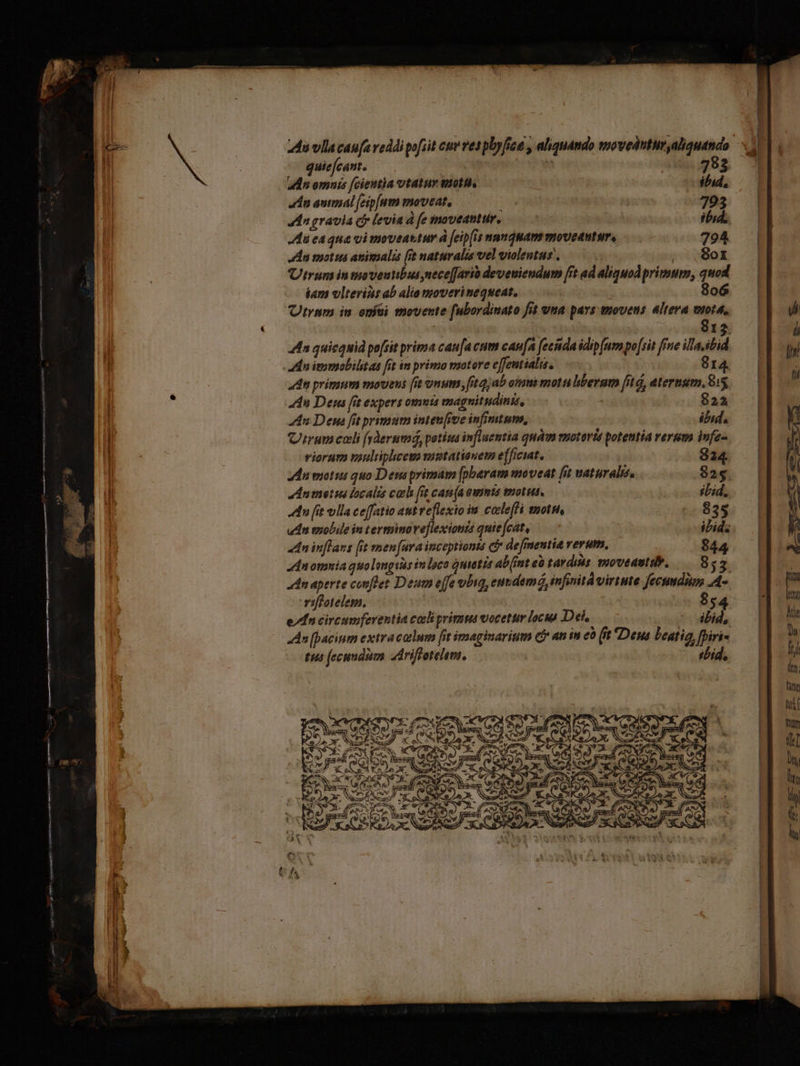 An vlla causa reddi possit cur res physicæ, aliquando moveantur, aliquando
quiescant. 783
An omnis scientia vtatur motu. ibid.
An animal seipsum moveat. 793
An gravia & levia à se moveantur. ibid.
An ea quæ vi moveantur à seipsis nunquam moveantur. 794
An motus animalis sit naturalis vel violentus. 801
Utrum in moventibus, necessariò deveniendum sit ad aliquod primum, quod
iam vlterius ab alio moveri nequeat. 806
Utrum in omni movente subordinato sit vna pars movens altera mota.
812
An quicquid possit prima causa cum causa secūda id ipsum possit sine illa. ibid.
An immobilitas sit in primo motore essentialis. 814
An primum movens sit vnum, sitq; ab omni motu liberum sitq́, aternum. 815
An Deus sit expers omnis magnitudinis. 822
An Deus sit primùm intensive infinitum. ibid.
Utrum cœli siderumq́, potius influentia quàm motoris potentia rerum infe-
riorum multiplicem mutationem efficiat. 824
An motus quo Deus primam spharam moveat sit naturalis. 825
An motus localis cœli sit causa omnis motus. ibid.
An sit vlla cessatio aut reflexio in cœlesti motu. 835
An mobile in termino reflexionis quiescat. ibid.
An instans sit mensura inceptionis & desinentia rerum. 844
An omnia quo longiùs in loco quietis absint eò tardiùs moveantur. 853
An aperte constet Deum esse vbiq, eundemq́, infinitâ virtute secundùm A-
ristotelem. 854
An circumferentia cœli primus vocetur locus Dei. ibid.
An spacium extra cœlum sit imaginarium & an in eò sit Deus beatiq, spiri-
tus secundùm Aristotelem. ibid.